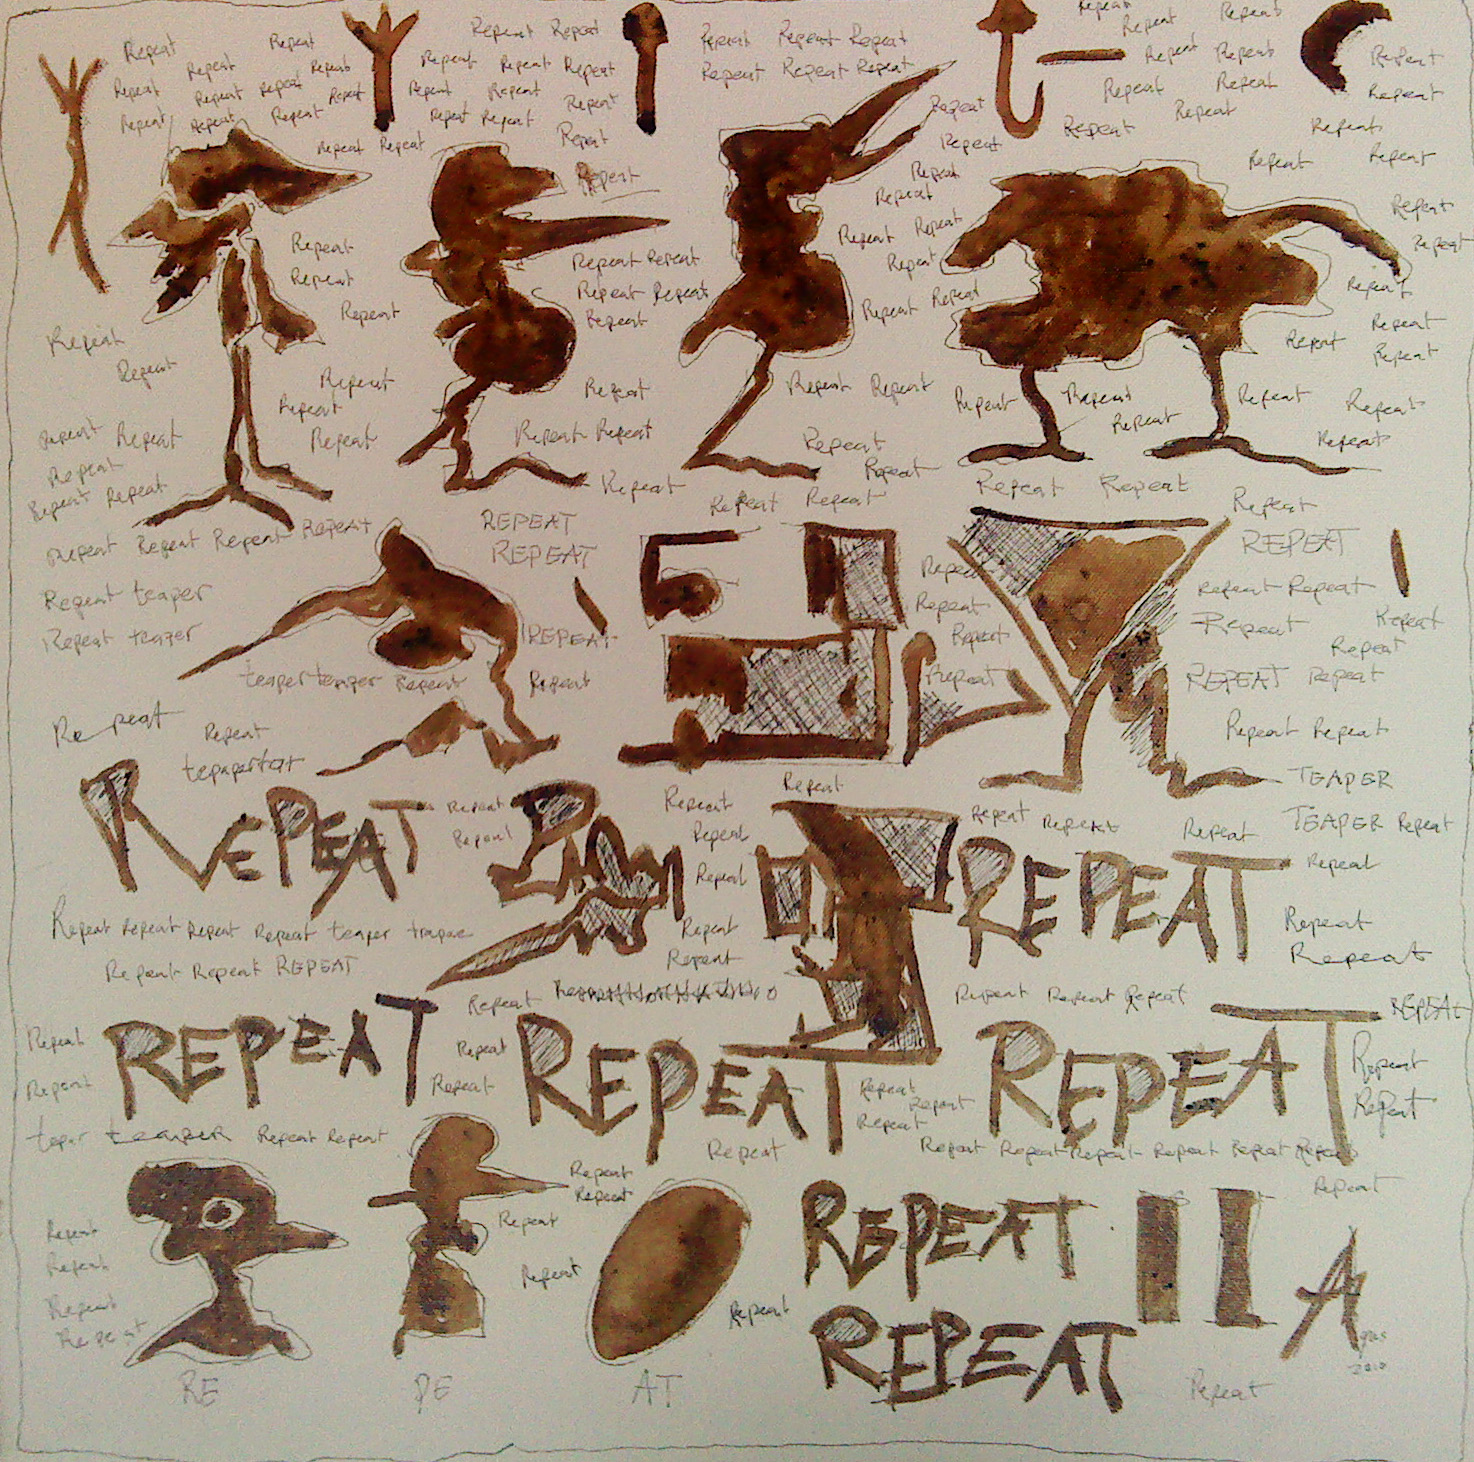 Repeat Repeat Repeat Repeat
Repeat Repeat Repeat Repeat Repeat Repeat
Repeat Repeat Repeat Repeat Repeat Repeat Repeat Repeat Repeat Repeat Repeat
Repeat Repeat Repeat Repeat Repeat Repeat Repeat Repeat Repeat
Repeat Repeat Repeat Repeat Repeat Repeat Repeat Repeat Repeat
Repeat Repeat Repeat Repeat Repeat Repeat Repeat
Repeat Repeat Repeat Repeat
Repeat Repeat Repeat Repeat
Repeat Repeat Repeat Repeat Repeat
Repeat Repeat Repeat Repeat Repeat
Repeat Repeat Repeat Repeat Repeat Repeat
Repeat Repeat Repeat Repeat
Repeat Repeat Repeat Repeat
Repeat Repeat Repeat Repeat Repeat Repeat Repeat
Repeat Repeat Repeat Repeat Repeat
Repeat Repeat Repeat Repeat Repeat Repeat Repeat
Repeat Repeat Repeat
Repeat Repeat Repeat Repeat Repeat
Repeat Repeat Repeat Repeat
REPEAT
Repeat Repeat Repeat REPEAT REPEAT REPEAT
Repeat teaper Repeat Repeat Repeat
Repeat teaper REPEAT Repeat Repeat Repeat
teaper teaper Repeat Repeat Repeat REPEAT Repeat
Repeat Repeat Repeat Repeat
TEAPER
Repeat Repeat Repeat
REPEAT Repeat Repeat Repeat Repeat Repeat TEAPER Repeat
Repeat Repeat REPEAT Repeat
Repeat Repeat Repeat Repeat teaper Repeat Repeat
Repeat Repeat REPEAT Repeat Repeat
Repeat Repeat Repeat Repeat
REPEAT REPEAT REPEAT REPEAT
Repeat Repeat Repeat
Repeat Repeat Repeat Repeat Repeat
teaper Repeat Repeat Repeat
Repeat Repeat Repeat Repeat Repeat Repeat Repeat
Repeat Repeat
Repeat
Repeat Repeat REPEAT
Repeat Repeat
Repeat Repeat REPEAT
Repeat
RE PE AT Repeat
2010